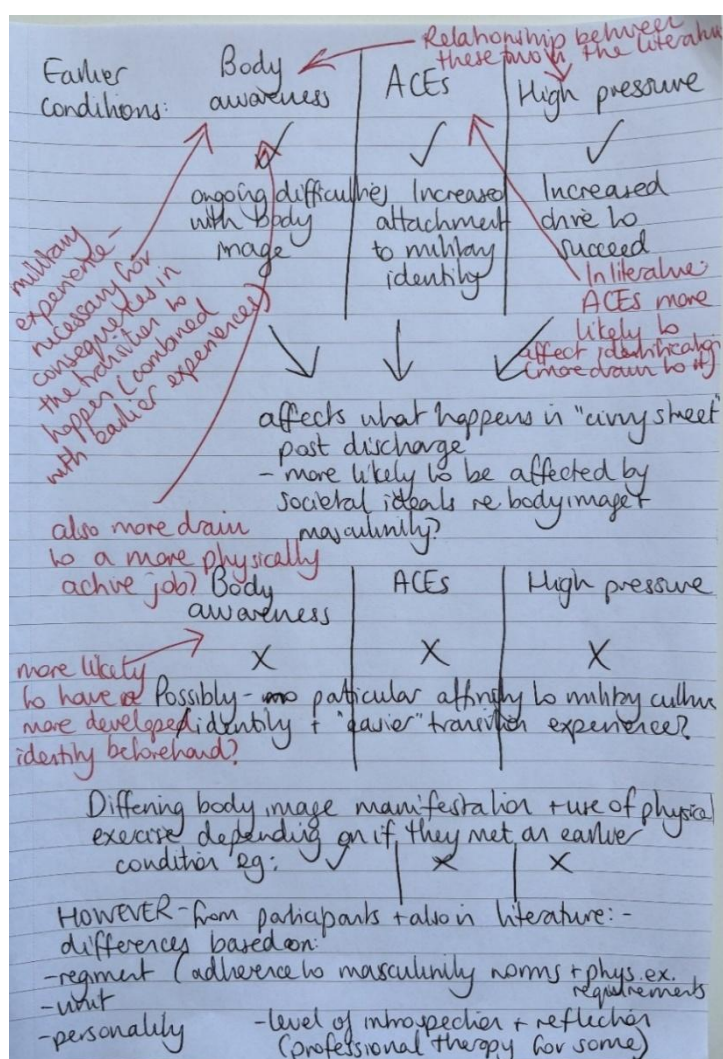 Relationship between
these two in the literature
Earlier
conditions:
Body
awareness
ACEs
High pressure
✓ ✓ ✓
ongoing difficulties
with body
image
Increased
attachment
to military
identity
Increased
drive to
succeed
military
experience -
necessary for
consequences in
the transition to
happen (combined
with earlier experiences)
In literature:
ACEs more
likely to
affect identification
(more drawn to it)
affects what happens in "civvy street"
post discharge
- more likely to be affected by
societal ideals re body image +
masculinity?
also more drawn
to a more physically
active job?
Body
awareness
ACEs
High pressure
X X X
more likely
to have a
more developed
identity beforehand?
Possibly - no particular affinity to military culture
/identity + "easier" transition experience?
Differing body image manifestation + use of physical
exercise depending on if they met an earlier
condition eg: ✓ X X
HOWEVER - from participants + also in literature: -
differences based on:
- regiment (adherence to masculinity norms + phys. ex.
requirements
- unit
- personality
- level of introspection + reflection
(professional therapy for some)